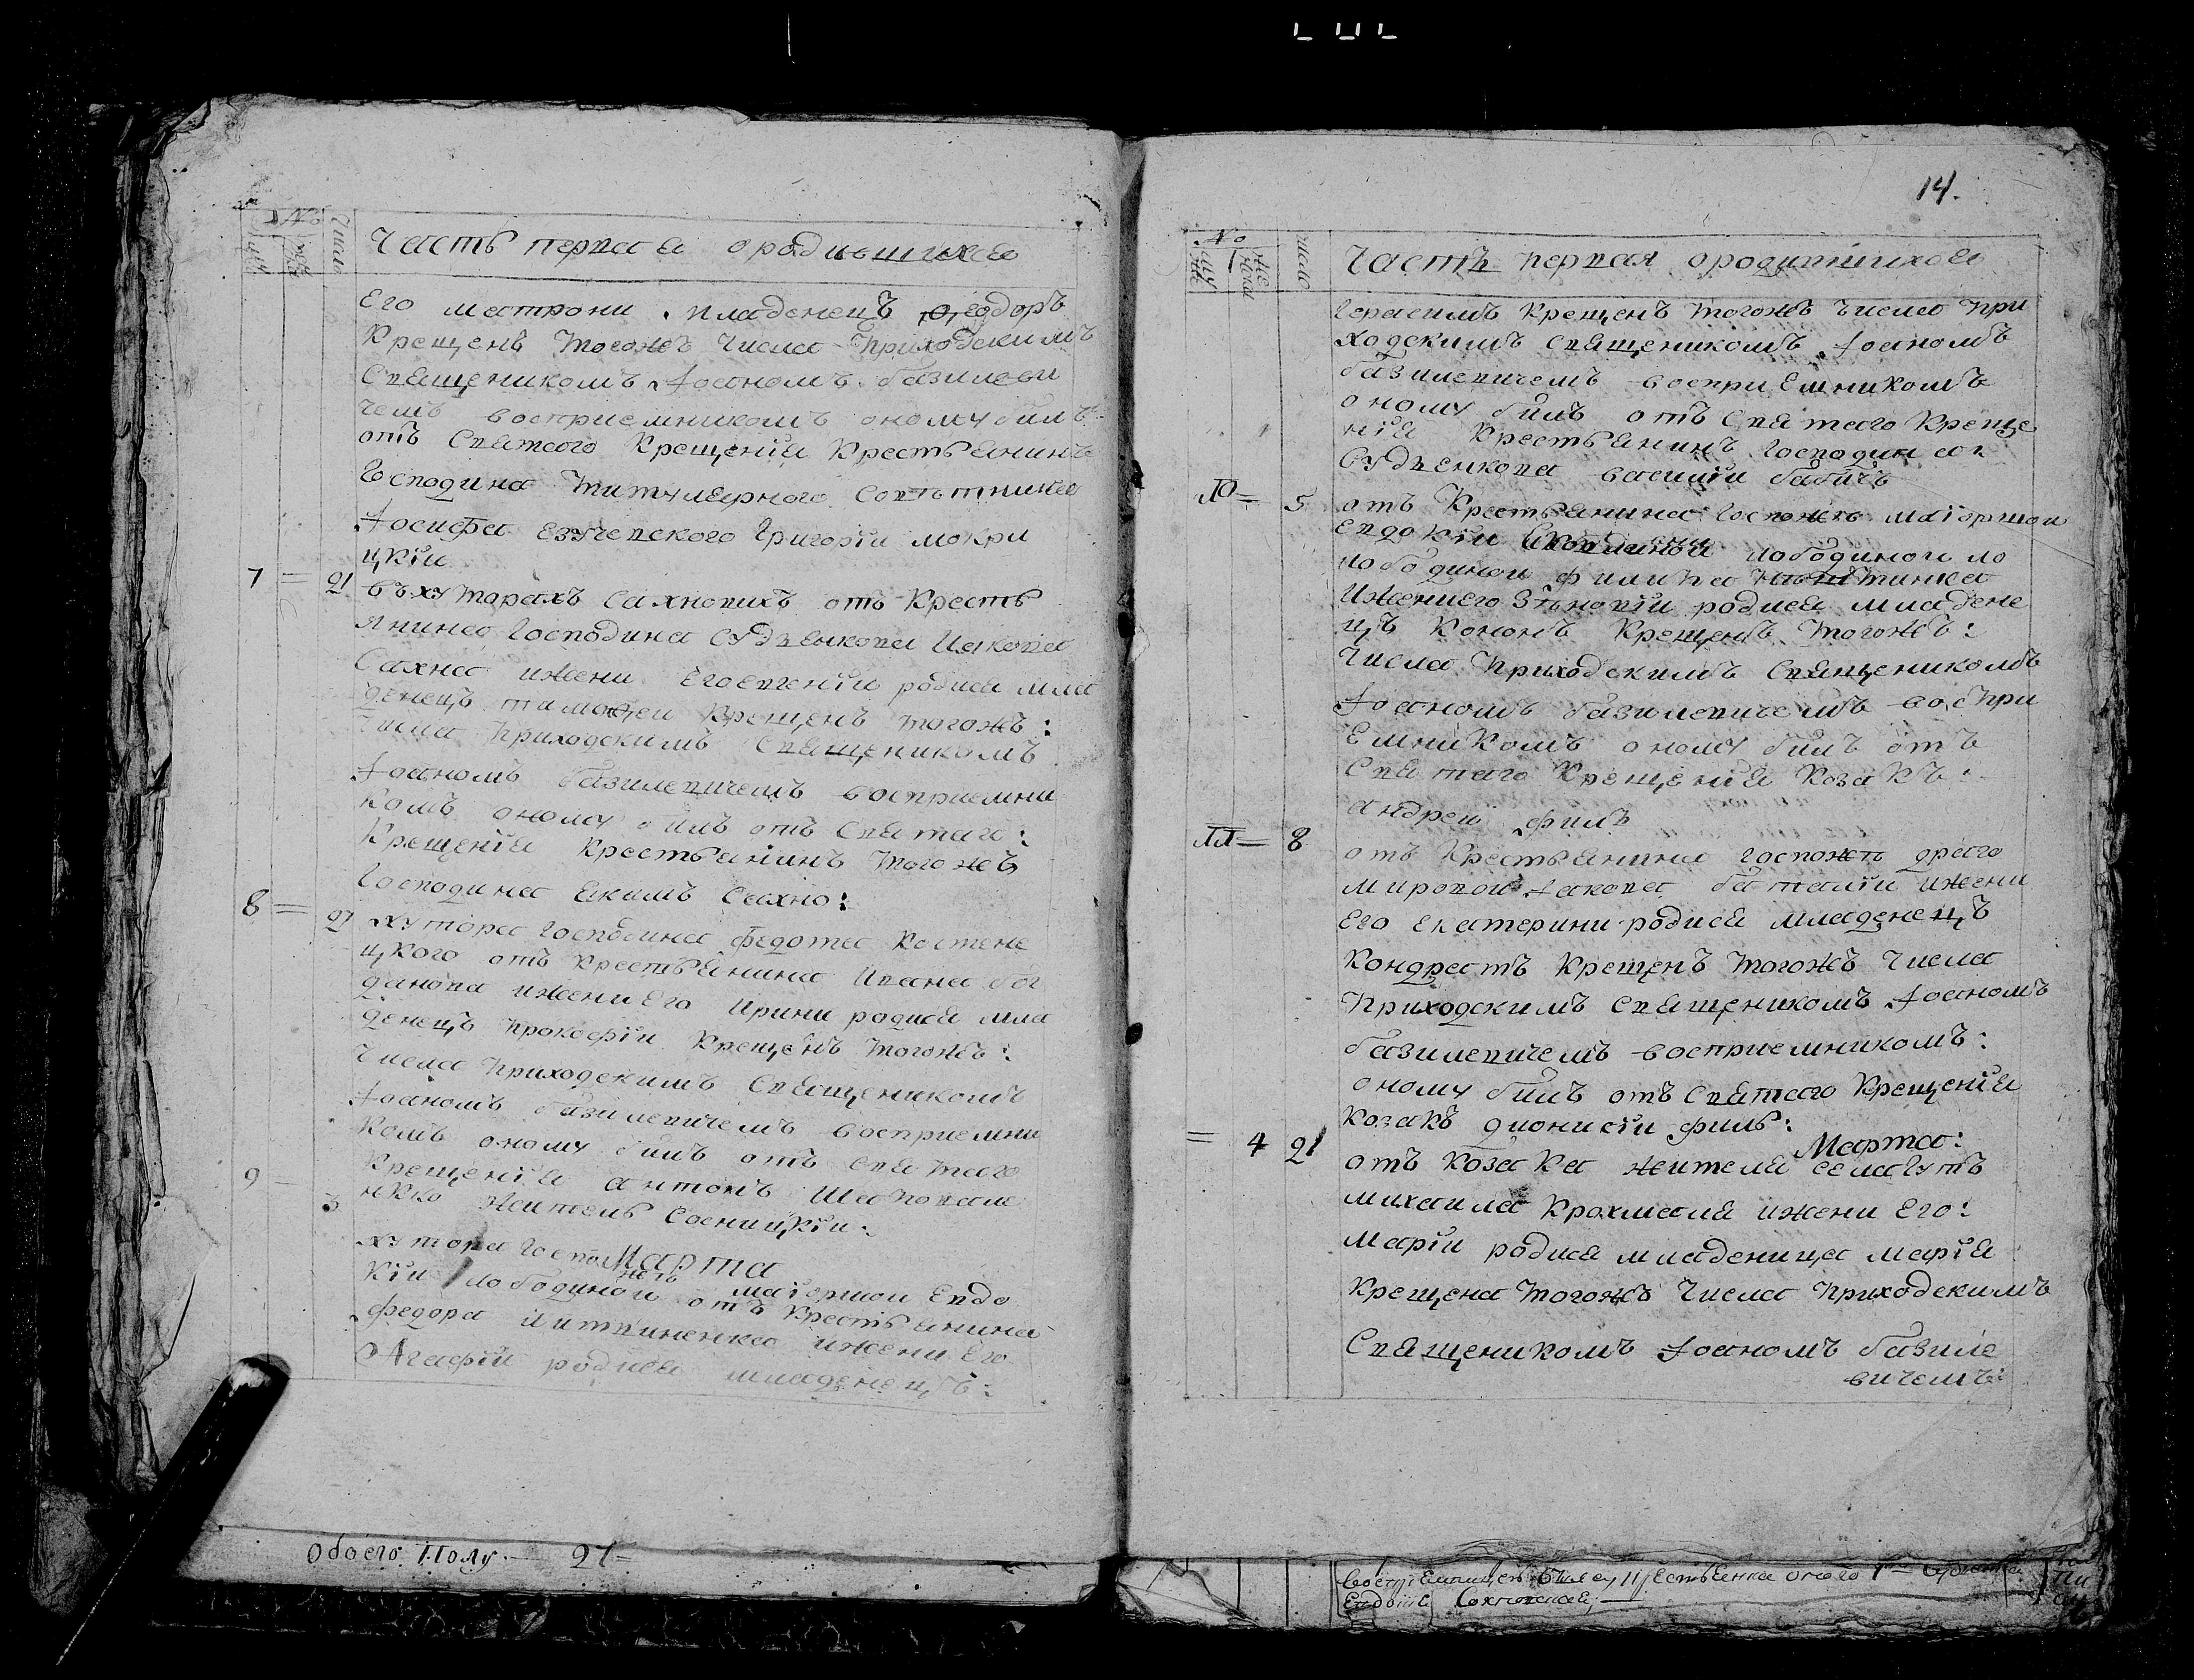 №
число
Часть первая о родившихся
Его матрони младенецъ Ѳеодоръ
Крещенъ тогожъ числа Приходскимъ
Священикомъ Іоаномъ базилеви
чемъ восприемникомъ оному билъ
отъ Святаго Крещенія Крестьянинъ
Господина титулярного Советника
Іосифа Григорій мокри
цкій
7 = 21 въхуторахъ Сахновихъ отъ Кресть
янина Господина Судѣенкова Иякова
Сахна ижени Его Евгеніи родися мла
денецъ тимоѳеи Крещенъ тогожъ:
числа Приходскимъ Священикомъ
Іоаномъ базилевичемъ восприемни
комъ оному билъ отъ Святаго:
Крещенія Крестьянинъ того жъ
Господина Екимъ Сахно:
8 = 27 хутора Господина Федота Костене
цкого отъ Крестьянина Ивана бог
данова ижени Его Ирини родися мла
денецъ Прокофіи Крещенъ тогожъ:
Числа Приходскимъ Священикомъ
Іоаномъ базилевичемъ восприемни
комъ оному билъ отъ Святаго
Крещенія антонъ Шаповале
нко житель Сосницкіи:
Марта
9 3 хутора Госпожи маіоршои Евдо
кіи лободинои отъ Крестьянина
федора Литвиненка ижени Его
Агафіи родися младенецъ:
Обоего Полу — 21 =
14.
№
число
Часть первая о родившихся
Герасимъ Крещенъ тогожъ числа При
ходскимъ Священикомъ Іоаномъ
базилевичемъ восприемникомъ
оному билъ отъ Святаго Креще
нія Крестьянинъ Господина
Судѣенкова василіи бабичъ
10 = 5 отъ Крестьянина Госпожи маіоршои
Евдокіи лободинои ло
бодинои филипа
Ижени Его Зѣновіи родися младене
цъ Кононъ Крещенъ тогожъ:
Числа Приходскимъ Священикомъ
Іоаномъ базилевичемъ воспри
Емникомъ оному билъ отъ
Святаго Крещенія Козакъ:
андреи филь
11 = 8 отъ Крестьянина Госпожи драго
мировои Іакова ижени
Его Екатерини родися младенецъ
Кондратъ Крещенъ тогожъ Числа
Приходскимъ Священикомъ Іоаномъ
базилевичемъ восприемникомъ:
оному билъ отъ Святаго Крещенія
Козакъ дионисіи филь:
Марта:
= 4 21 отъ Козака жителя села Гутъ
михаила Крохмаля ижени Его:
маріи родися младеница марія
Крещена тогожъ Числа Приходскимъ
Священикомъ Іоаномъ базиле
вичемъ: